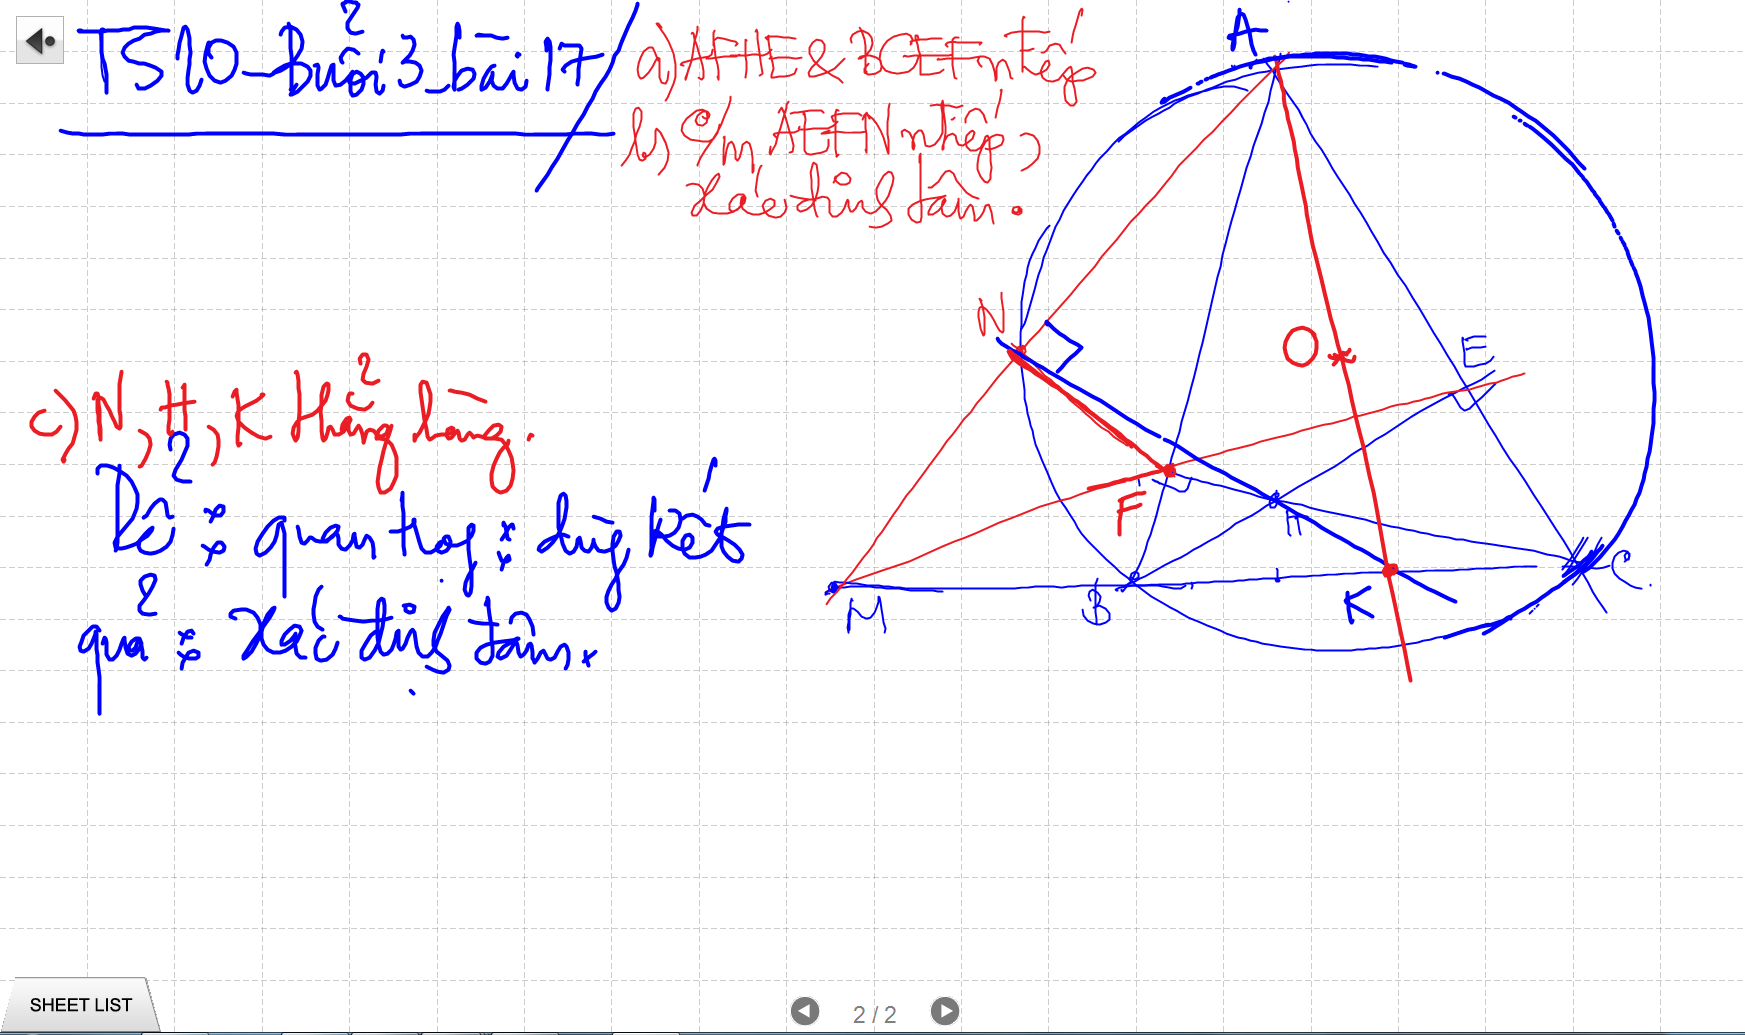 TS10_Buổi 3_bài 17
a) AFHE & BCEF ntiếp
b) C/m AEFN ntiếp,
xác định tâm.
c) N, H, K thẳng hàng.
Để : quan trọng : dùng kết
quả : xác định tâm.
A
N
O
E
F
H
M
B
K
C
SHEET LIST
2 / 2